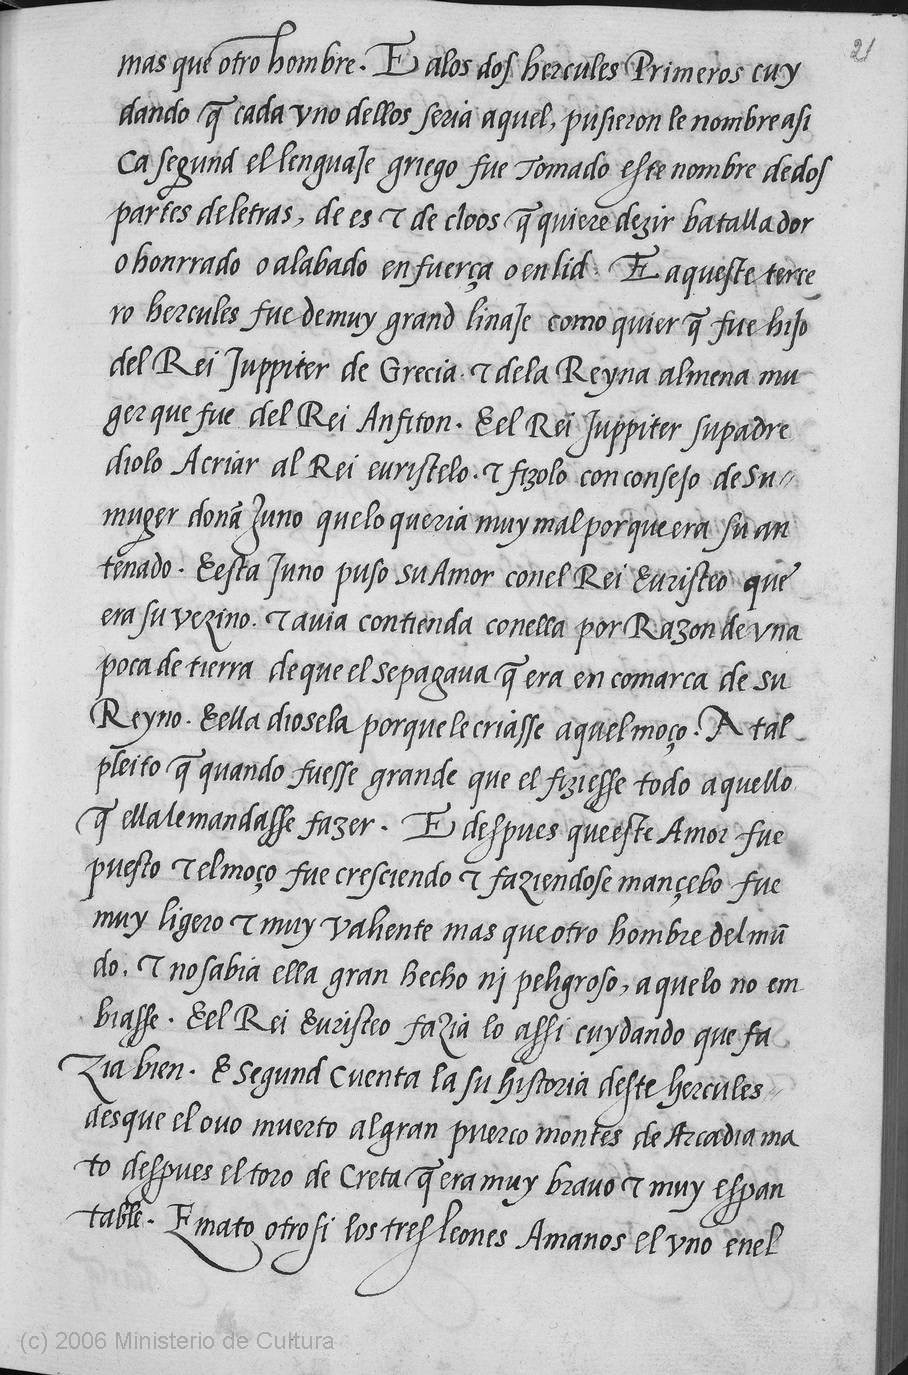 21
mas que otro hombre. E alos dos hercules Primeros cuy
dando q̃ cada vno dellos seria aquel, pusieron le nombre asi
Ca segund el lenguaJe griego fue Tomado este nombre de dos
partes de letras, de es τ de cloos q̃ quiere dezir batallador
o honrrado o alabado en fuerça o en lid. E aqueste terce
ro hercules fue de muy grand linaJe como quier q̃ fue hiJo
del Rei Juppiter de Grecia. τ dela Reyna almena mu
ger que fue del Rei Anfiton. E el Rei Juppiter su padre
diolo Acriar al Rei euristelo. τ fizolo con consejo de Su
muger donã Juno que lo queria muy mal porque era su an
tenado. E esta Juno puso su Amor conel Rei Euristeo que
era su vezino. τ avia contienda conella por Razon de vna
poca de tierra de que el se pagaua q̃ era en comarca de su
Reyno. E ella diosela porque le criasse aquel moço. A tal
pleito q̃ quando fuesse grande que el fiziesse todo aquello
q̃ ella le mandasse fazer. E despues que este Amor fue
puesto τ el moço fue cresciendo τ faziendose mançebo fue
muy ligero τ muy valiente mas que otro hombre del mũ
do. τ no sabia ella gran hecho nj peligroso, a que lo no em
biasse. E el Rei Euristeo fazia lo assi cuydando que fa
zia bien. E Segund Cuenta la su historia deste hercules
desque el ovo muerto al gran puerco montes de Arcadia ma
to despues el toro de Creta q̃ era muy bravo τ muy espan
table. E mato otrosi los tres leones Amanos el vno enel
(c) 2006 Ministerio de Cultura